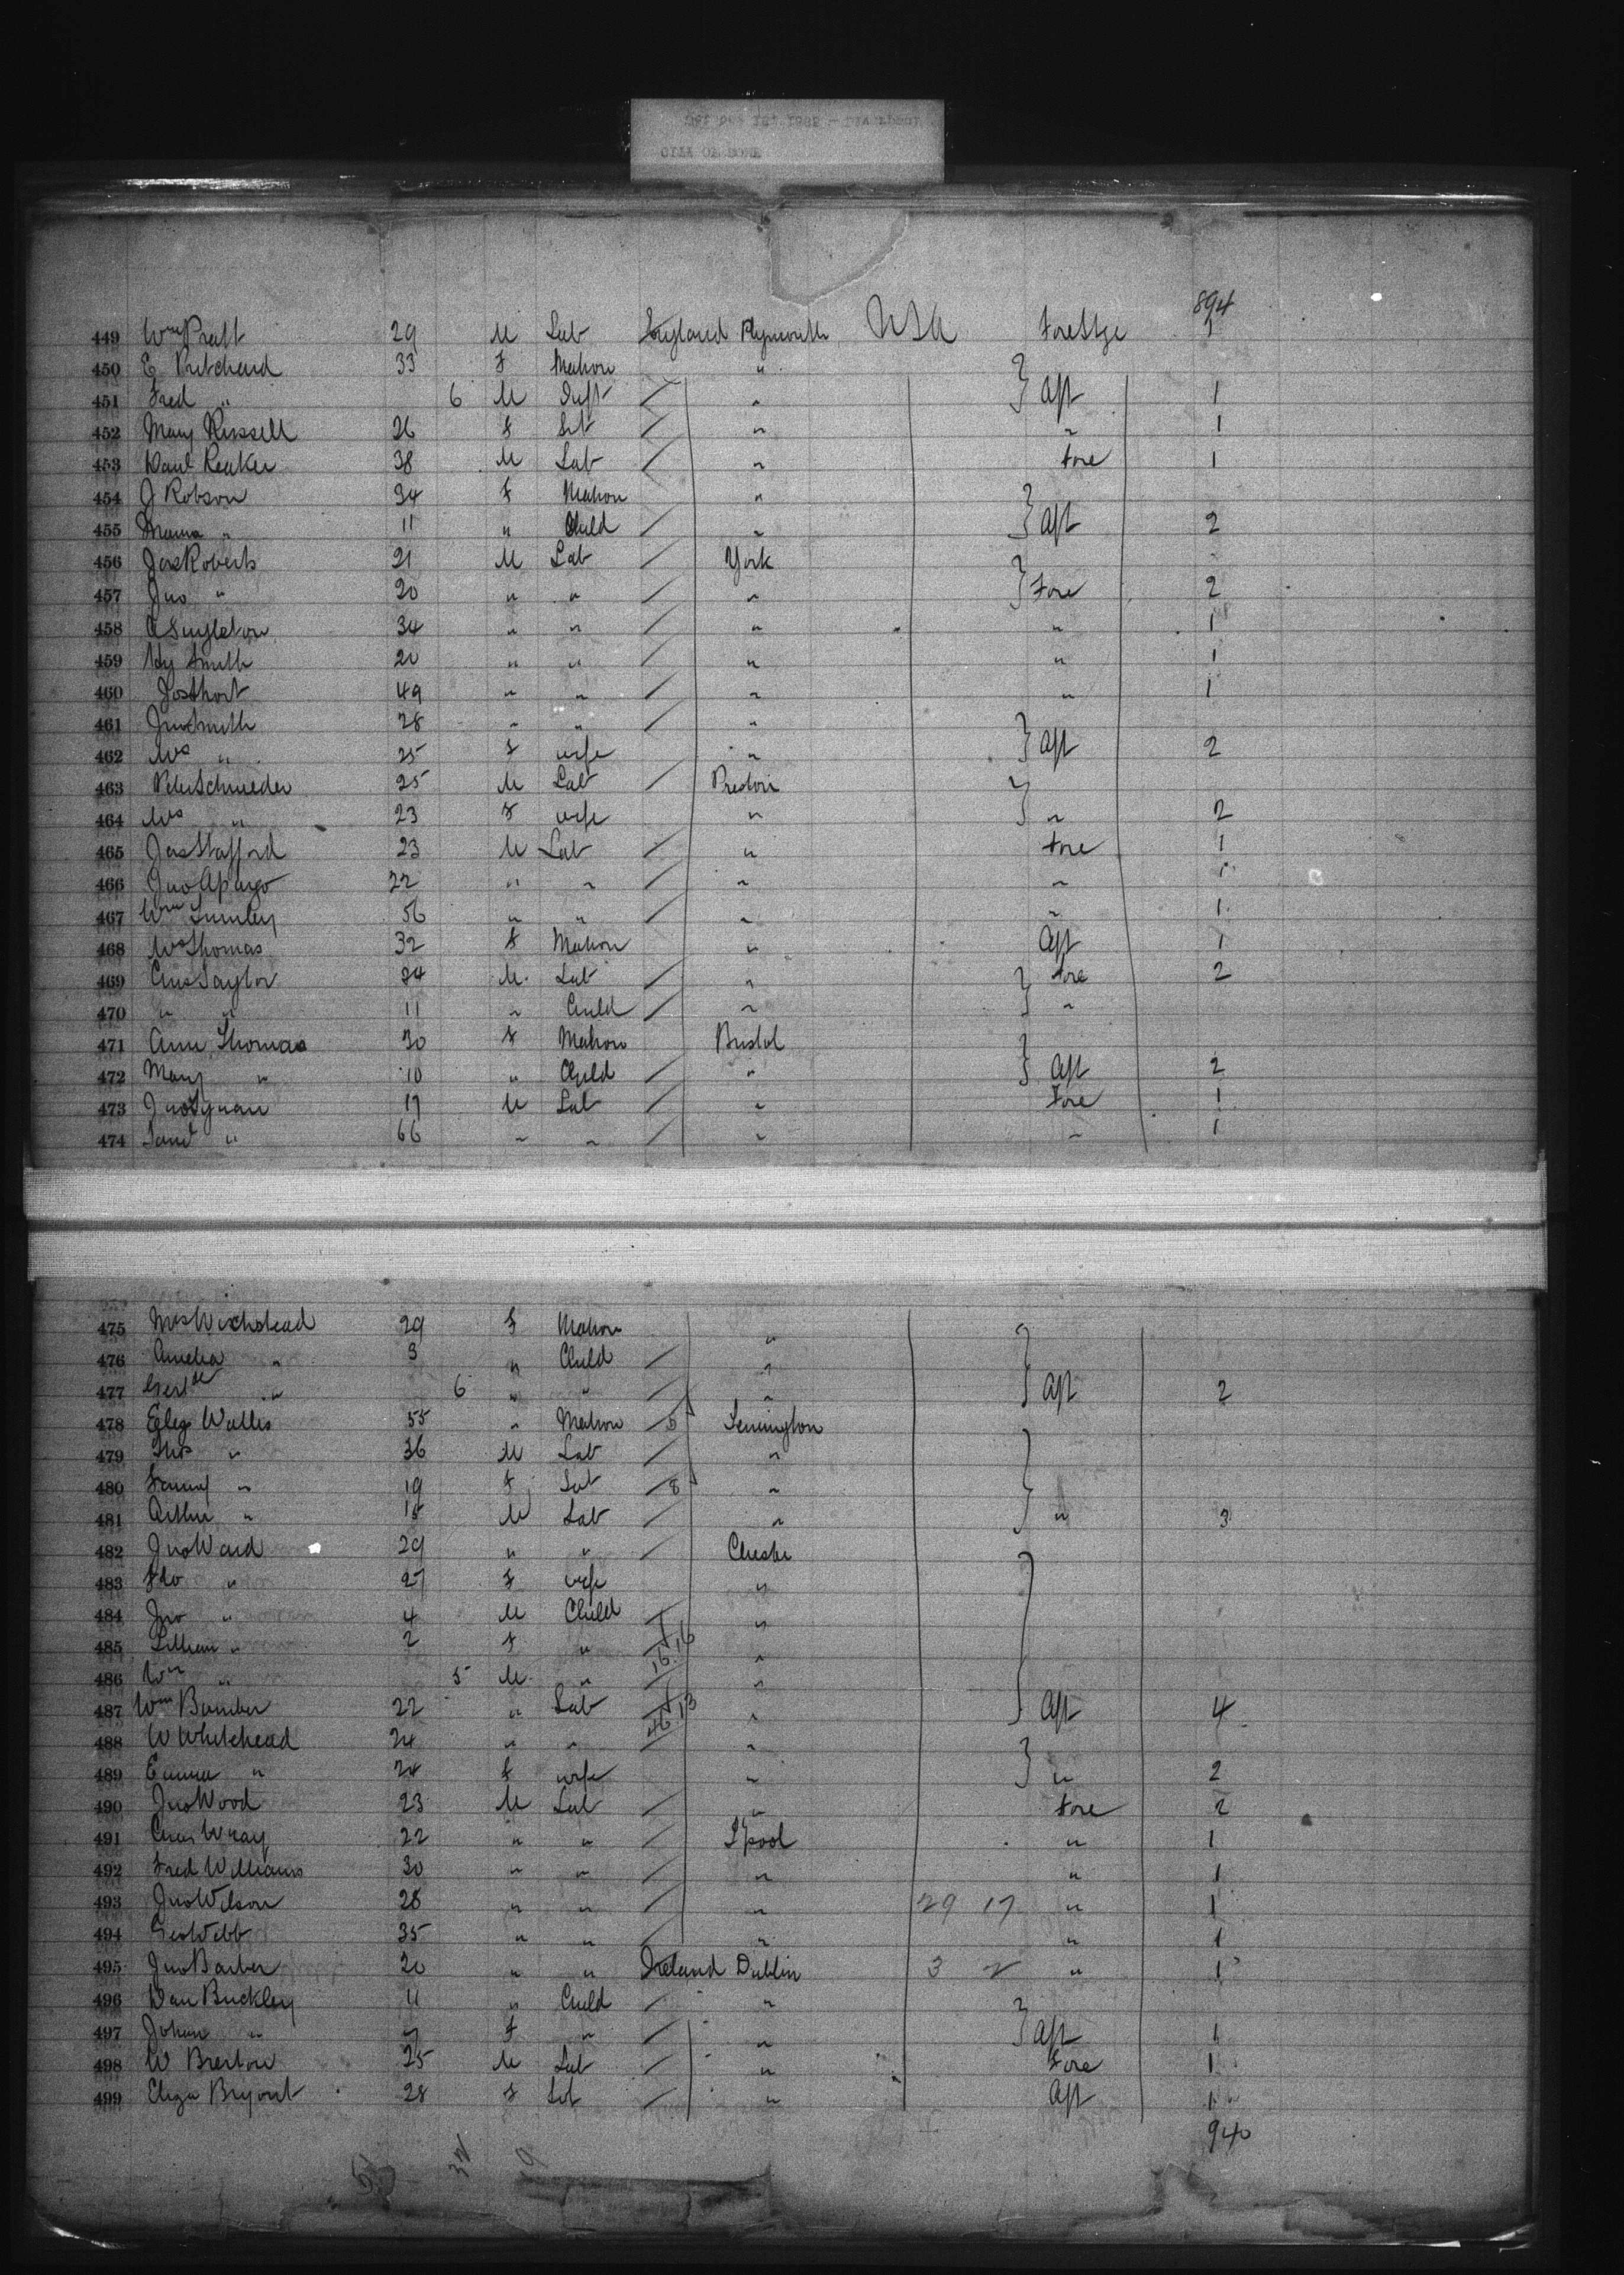 CITY OF ROME
894
449 Wm Pratt 29 M Lab England Plymouth USA ForeStge 1
450 E Pritchard 33 F Matron "
451 Fred " 6 M Inft " Aft 1
452 Mary Russell 26 F " " 1
453 Danl Reaker 38 M Lab " Fore 1
454 J Robson 34 F Matron "
455 " 11 " Child " Aft 2
456 Jas Roberts 21 M Lab York
457 Jno " 20 " " " Fore 2
458 A Singleton 34 " " " " 1
459 Hy Smith 20 " " " " 1
460 Jos Short 49 " " " " 1
461 Jno Smith 28 " " "
462 Mrs " 25 F wife " Aft 2
463 Peter Schmieder 25 M Lab Preston
464 Mrs " 23 F wife " " 2
465 Jas Stafford 23 M Lab " Fore 1
466 Jno 22 " " " " 1
467 Wm 56 " " " " 1
468 Mrs Thomas 32 F Matron " Aft 1
469 Chas Taylor 34 M Lab " Fore 2
470 " " 11 " Child " "
471 Ann Thomas 30 F Matron Bristol
472 Mary " 10 " Child " Aft 2
473 Jno 17 M Lab " Fore 1
474 Saml " 66 " " " " 1
475 Mrs Wickstead 29 F Matron "
476 Amelia " 3 " Child "
477 Gertde " 6 " " " Aft 2
478 Wallis 55 " Matron
479 Thos " 36 M Lab "
480 Fanny " 19 F 8 "
481 Arthur " 15 M Lab " " 3
482 Jno Ward 29 " " Chester
483 Flo " 27 F wife "
484 Jno " 4 M Child "
485 Lillian " 2 F " 16.16 "
486 Wm " 5 M " "
487 Wm Bamber 22 " Lab 46.13 " Aft 4
488 W Whitehead 24 " " "
489 Emma " 24 F wife " " 2
490 Jno Wood 23 M Lab " Fore 2
491 Chas Wray 22 " " L'pool " 1
492 Fred Williams 30 " " " " 1
493 Jno Wilson 28 " " " 29 17 " 1
494 Geo Webb 35 " " " " 1
495 Jno Barber 20 " " Ireland Dublin 3 2 " 1
496 Dan Buckley 11 " Child "
497 Johan " 7 F " " Aft 1
498 W Brerton 25 M Lab " Fore 1
499 Eliza Bryant 28 F " Aft 1
940